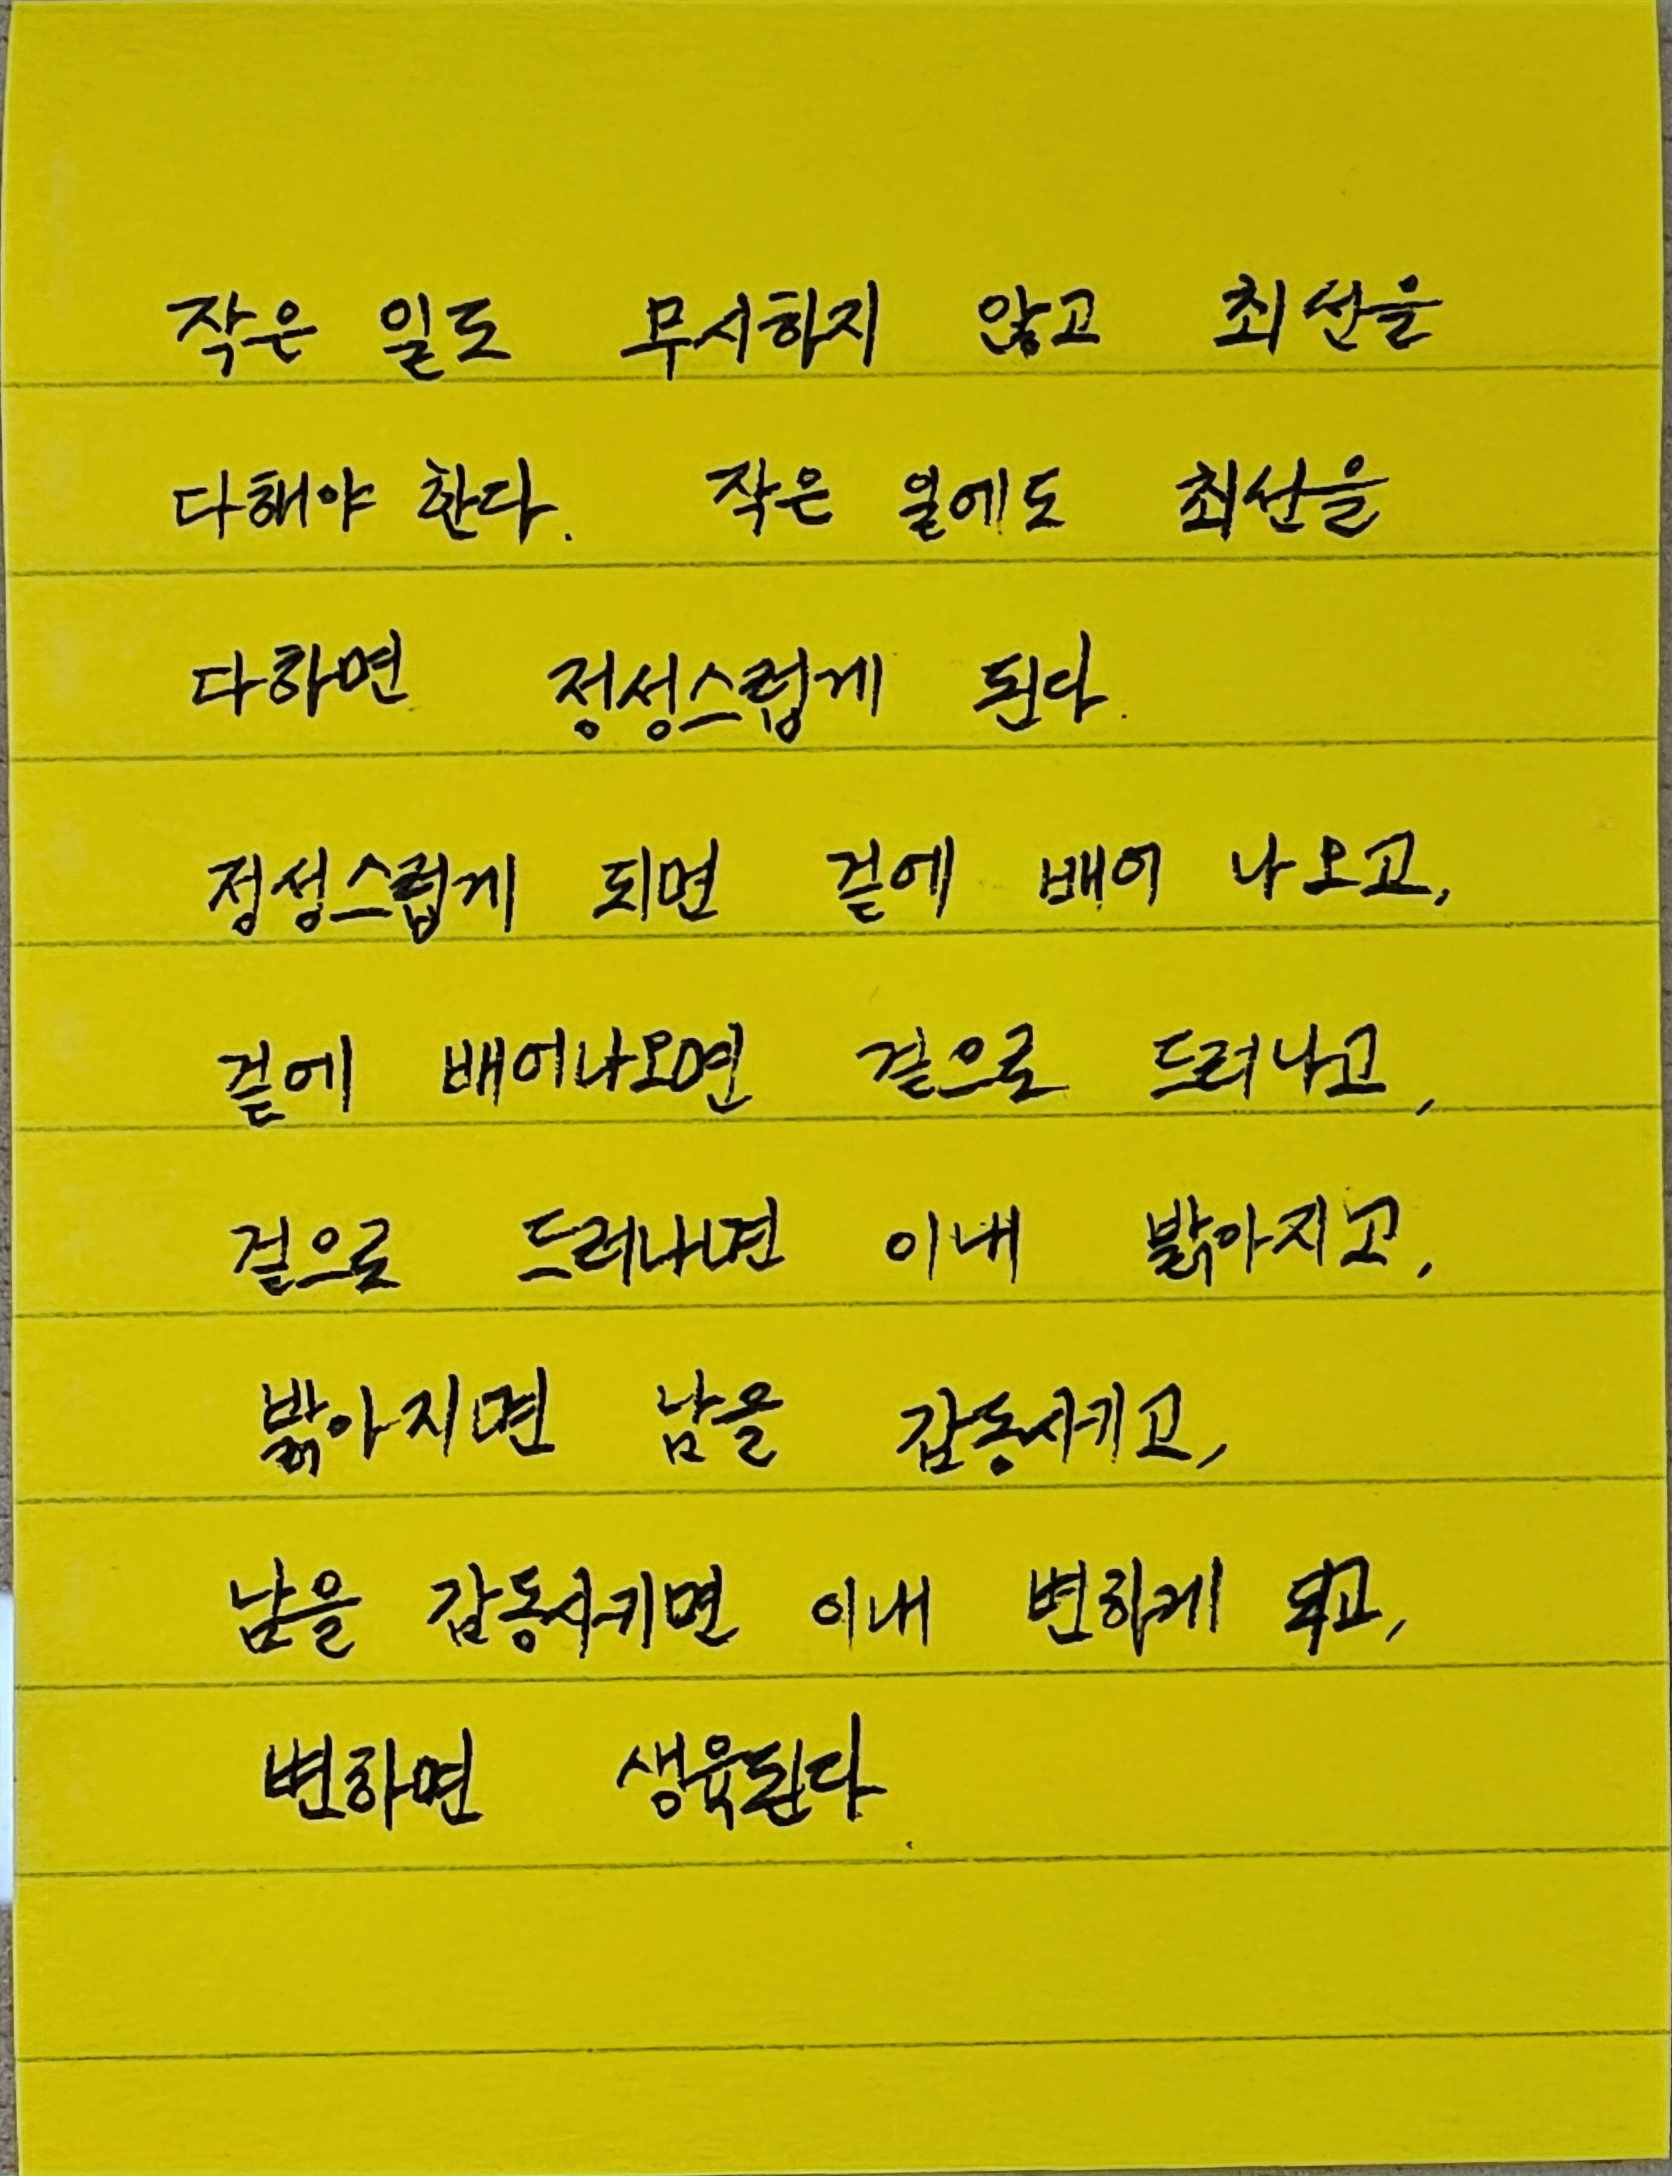 작은 일도 무시하지 않고 최선을
다해야 한다. 작은 일에도 최선을
다하면 정성스럽게 된다.
정성스럽게 되면 겉에 배어 나오고,
겉에 배어나오면 겉으로 드러나고,
겉으로 드러나면 이내 밝아지고,
밝아지면 남을 감동시키고,
남을 감동시키면 이내 변하게 되고,
변하면 생육된다.